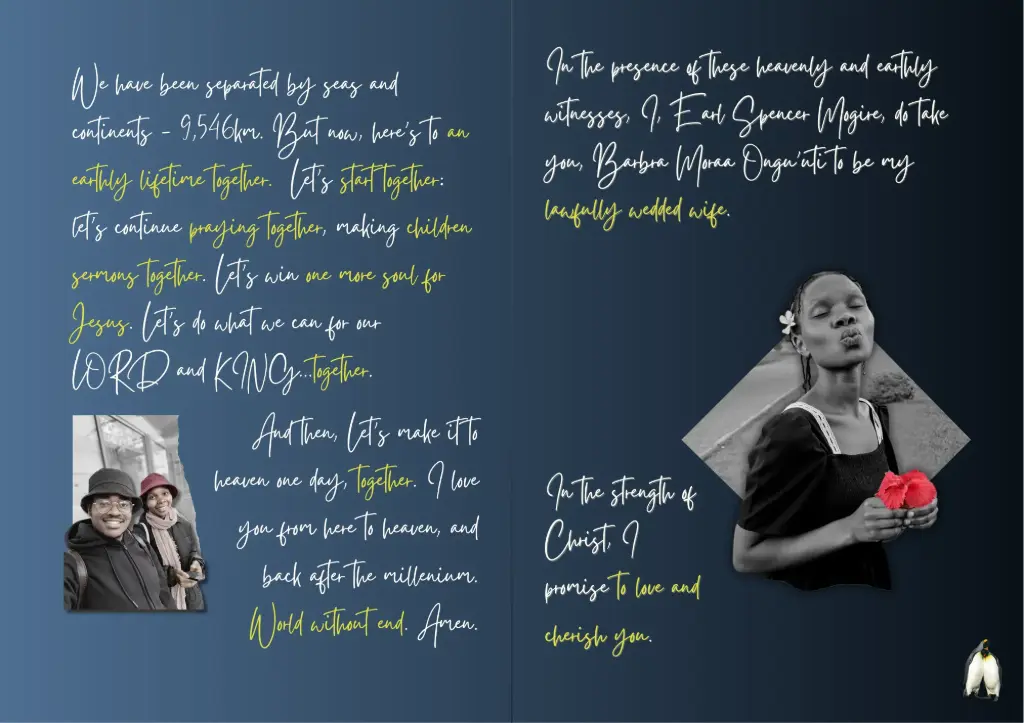 We have been separated by seas and
continents - 9,546km. But now, here's to an
earthly lifetime together. Let's start together:
let's continue praying together, making children
sermons together. Let's win one more soul for
Jesus. Let's do what we can for our
LORD and KING...together.
And then, Let's make it to
heaven one day, together. I love
you from here to heaven, and
back after the millenium.
World without end. Amen.
In the presence of these heavenly and earthly
witnesses, I, Earl Spencer Mogire, do take
you, Barbra Moraa Ongu'uti to be my
lawfully wedded wife.
In the strength of
Christ, I
promise to love and
cherish you.